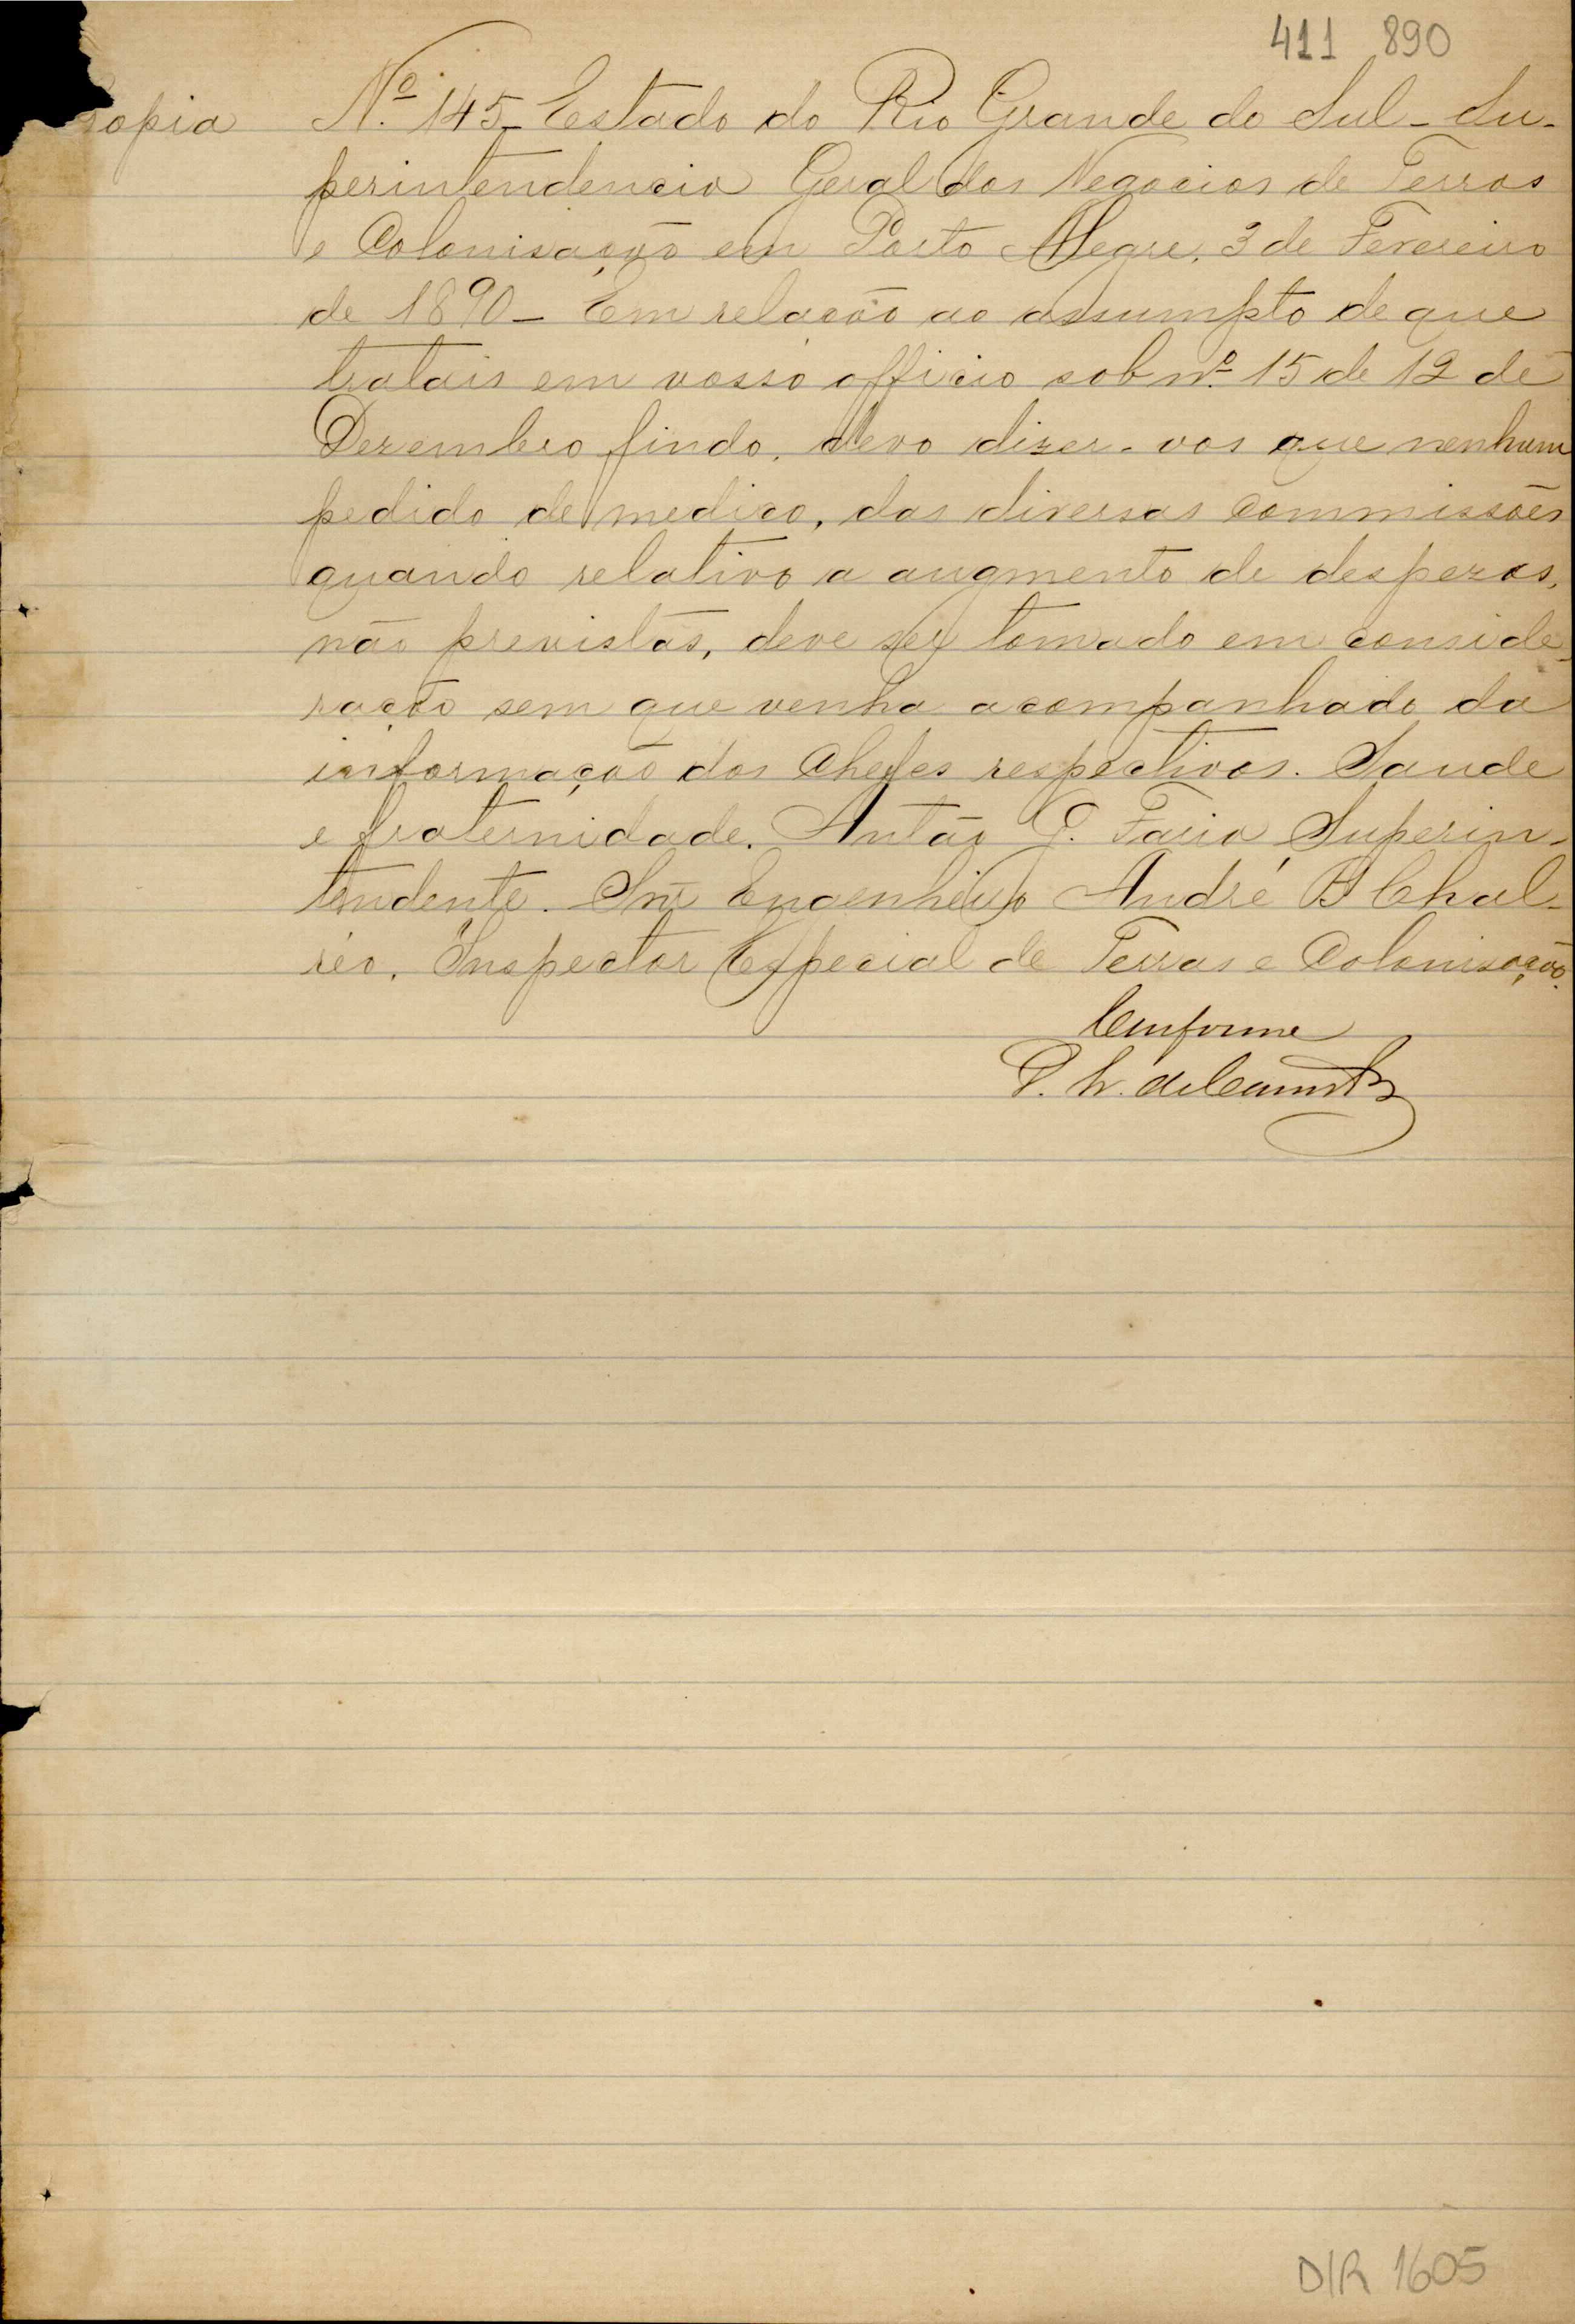 411 890
Copia
Nº 145 _ Estado do Rio Grande do Sul _ Su-
perintendencia Geral dos Negocios de Terras
e Colonisação em Porto Alegre, 3 de Fevereiro
de 1890 _ Em relação ao assumpto de que
tratais em vosso officio sob nº 15 de 12 de
Dezembro findo, devo dizer-vos que nenhum
pedido de medico, das diversas Commissões
quando relativo a augmento de despezas,
não previstas, deve ser tomado em conside-
ração sem que venha acompanhado da
informação dos Chefes respectivos. Saude
e fraternidade. Antão G. Faria, Superin-
tendente. Snr Engenheiro André B Chal-
réo, Inspector Especial de Terras e Colonisação.
Conforme
DIR 1605